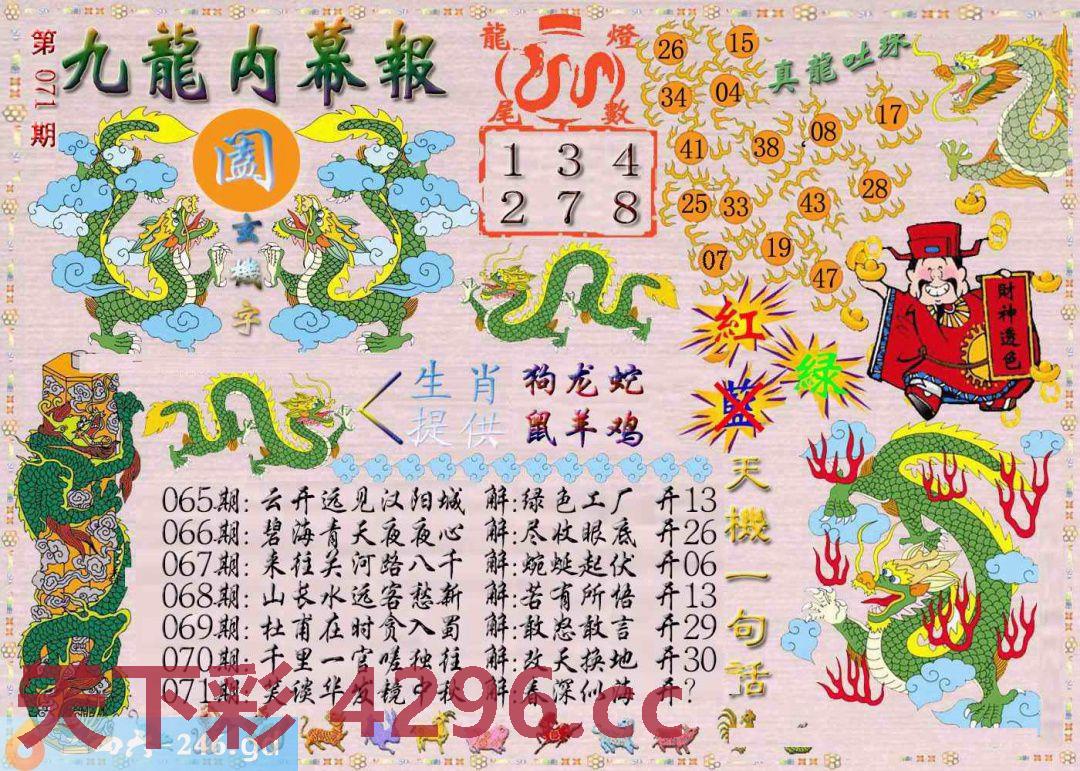 第071期
九龍内幕報
玄機字
龍燈尾數
1 3 4
2 7 8
真龍吐珠
26 15
34 04
41 38 08 17
25 33 43 28
07 19 47
財神透色
紅
藍
绿
生肖提供
狗龙蛇
鼠羊鸡
天機一句话
065期: 云开远见汉阳城 解:绿色工厂 开13
066期: 碧海青天夜夜心 解:尽收眼底 开26
067期: 来往关河路八千 解:蜿蜒起伏 开06
068期: 山长水远客愁新 解:若有所悟 开13
069期: 杜甫在时贪入蜀 解:敢怒敢言 开29
070期: 千里一官嗟独往 解:改天换地 开30
071期: 笑谈华发镜中秋 解:春深似海 开?
天下彩 4296.cc
=246.gd